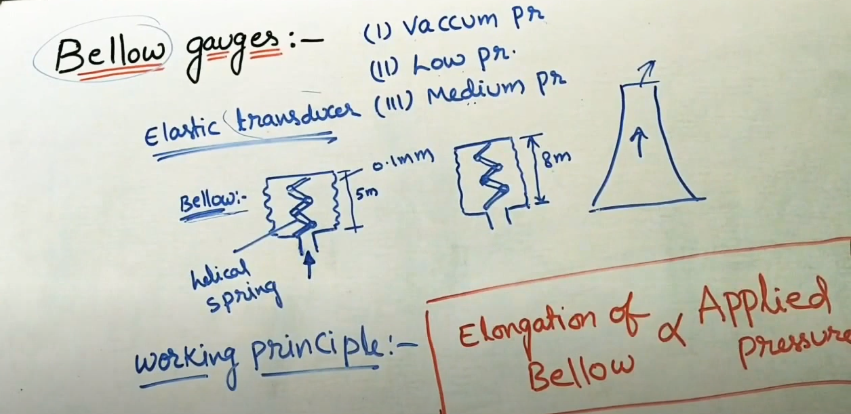 Bellow gauges:-
(I) Vaccum pr
(II) Low pr.
(III) Medium pr
Elastic transducer
Bellow:-
0.1mm
5m
8m
helical
spring
working principle:-
Elongation of
Bellow
α
Applied
pressure